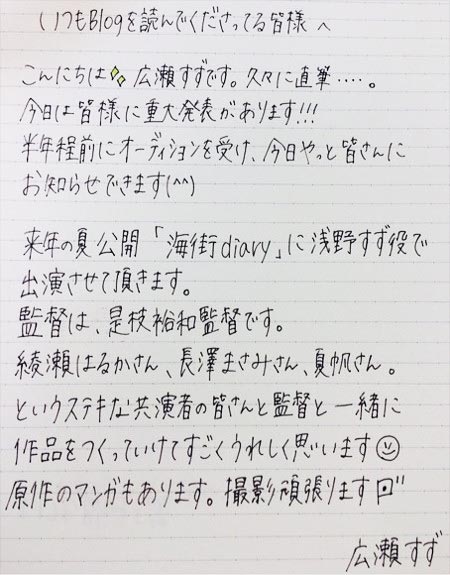 いつもBlogを読んでくださってる皆様へ
こんにちは 広瀬すずです。久々に直筆‥‥。
今日は皆様に重大発表があります!!!
半年程前にオーディションを受け、今日やっと皆さんに
お知らせできます(^^)
来年の夏公開「海街diary」に浅野すず役で
出演させて頂きます。
監督は、是枝裕和監督です。
綾瀬はるかさん、長澤まさみさん、夏帆さん。
というステキな共演者の皆さんと監督と一緒に
作品をつくっていけてすごくうれしく思います☺
原作のマンガもあります。撮影頑張ります
広瀬すず